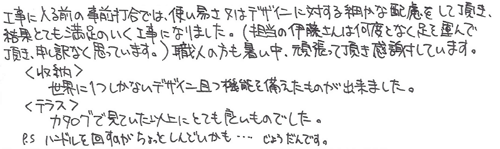 工事に入る前の事前打合では、使い易さ又はデザインに対する細やな配慮をして頂き、
結果とても満足のいく工事になりました。(担当の伊藤さんは何度となく足を運んで
頂き、申し訳なく思っています。) 職人の方も暑い中、頑張って頂き感謝しています。
<収納>
世界に1つしかないデザイン且つ機能を備えたものが出来ました。
<テラス>
カタログで見ていた以上にとても良いものでした。
P.S ハンドルを回すがちょっとしんどいかも… じょうだんです。